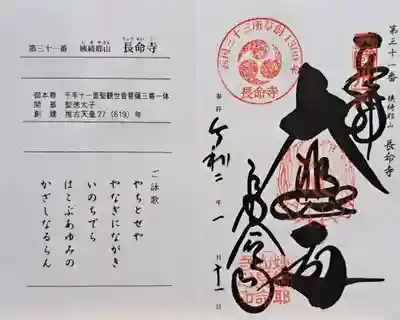 第三十一番 姨綺耶山 長命寺
いきやさん
ちょうめいじ
御本尊 千手十一面聖観世音菩薩三尊一体
開基 聖徳太子
創建 推古天皇27(619)年
ご詠歌
やちとせや
やなぎにながき
いのちでら
はこぶあゆみの
かざしなるらん
第三十一番 姨綺耶山 長命寺
西国三十三所草創1300年
長命寺
奉拝 令和二年一月十一日
大悲
長命寺